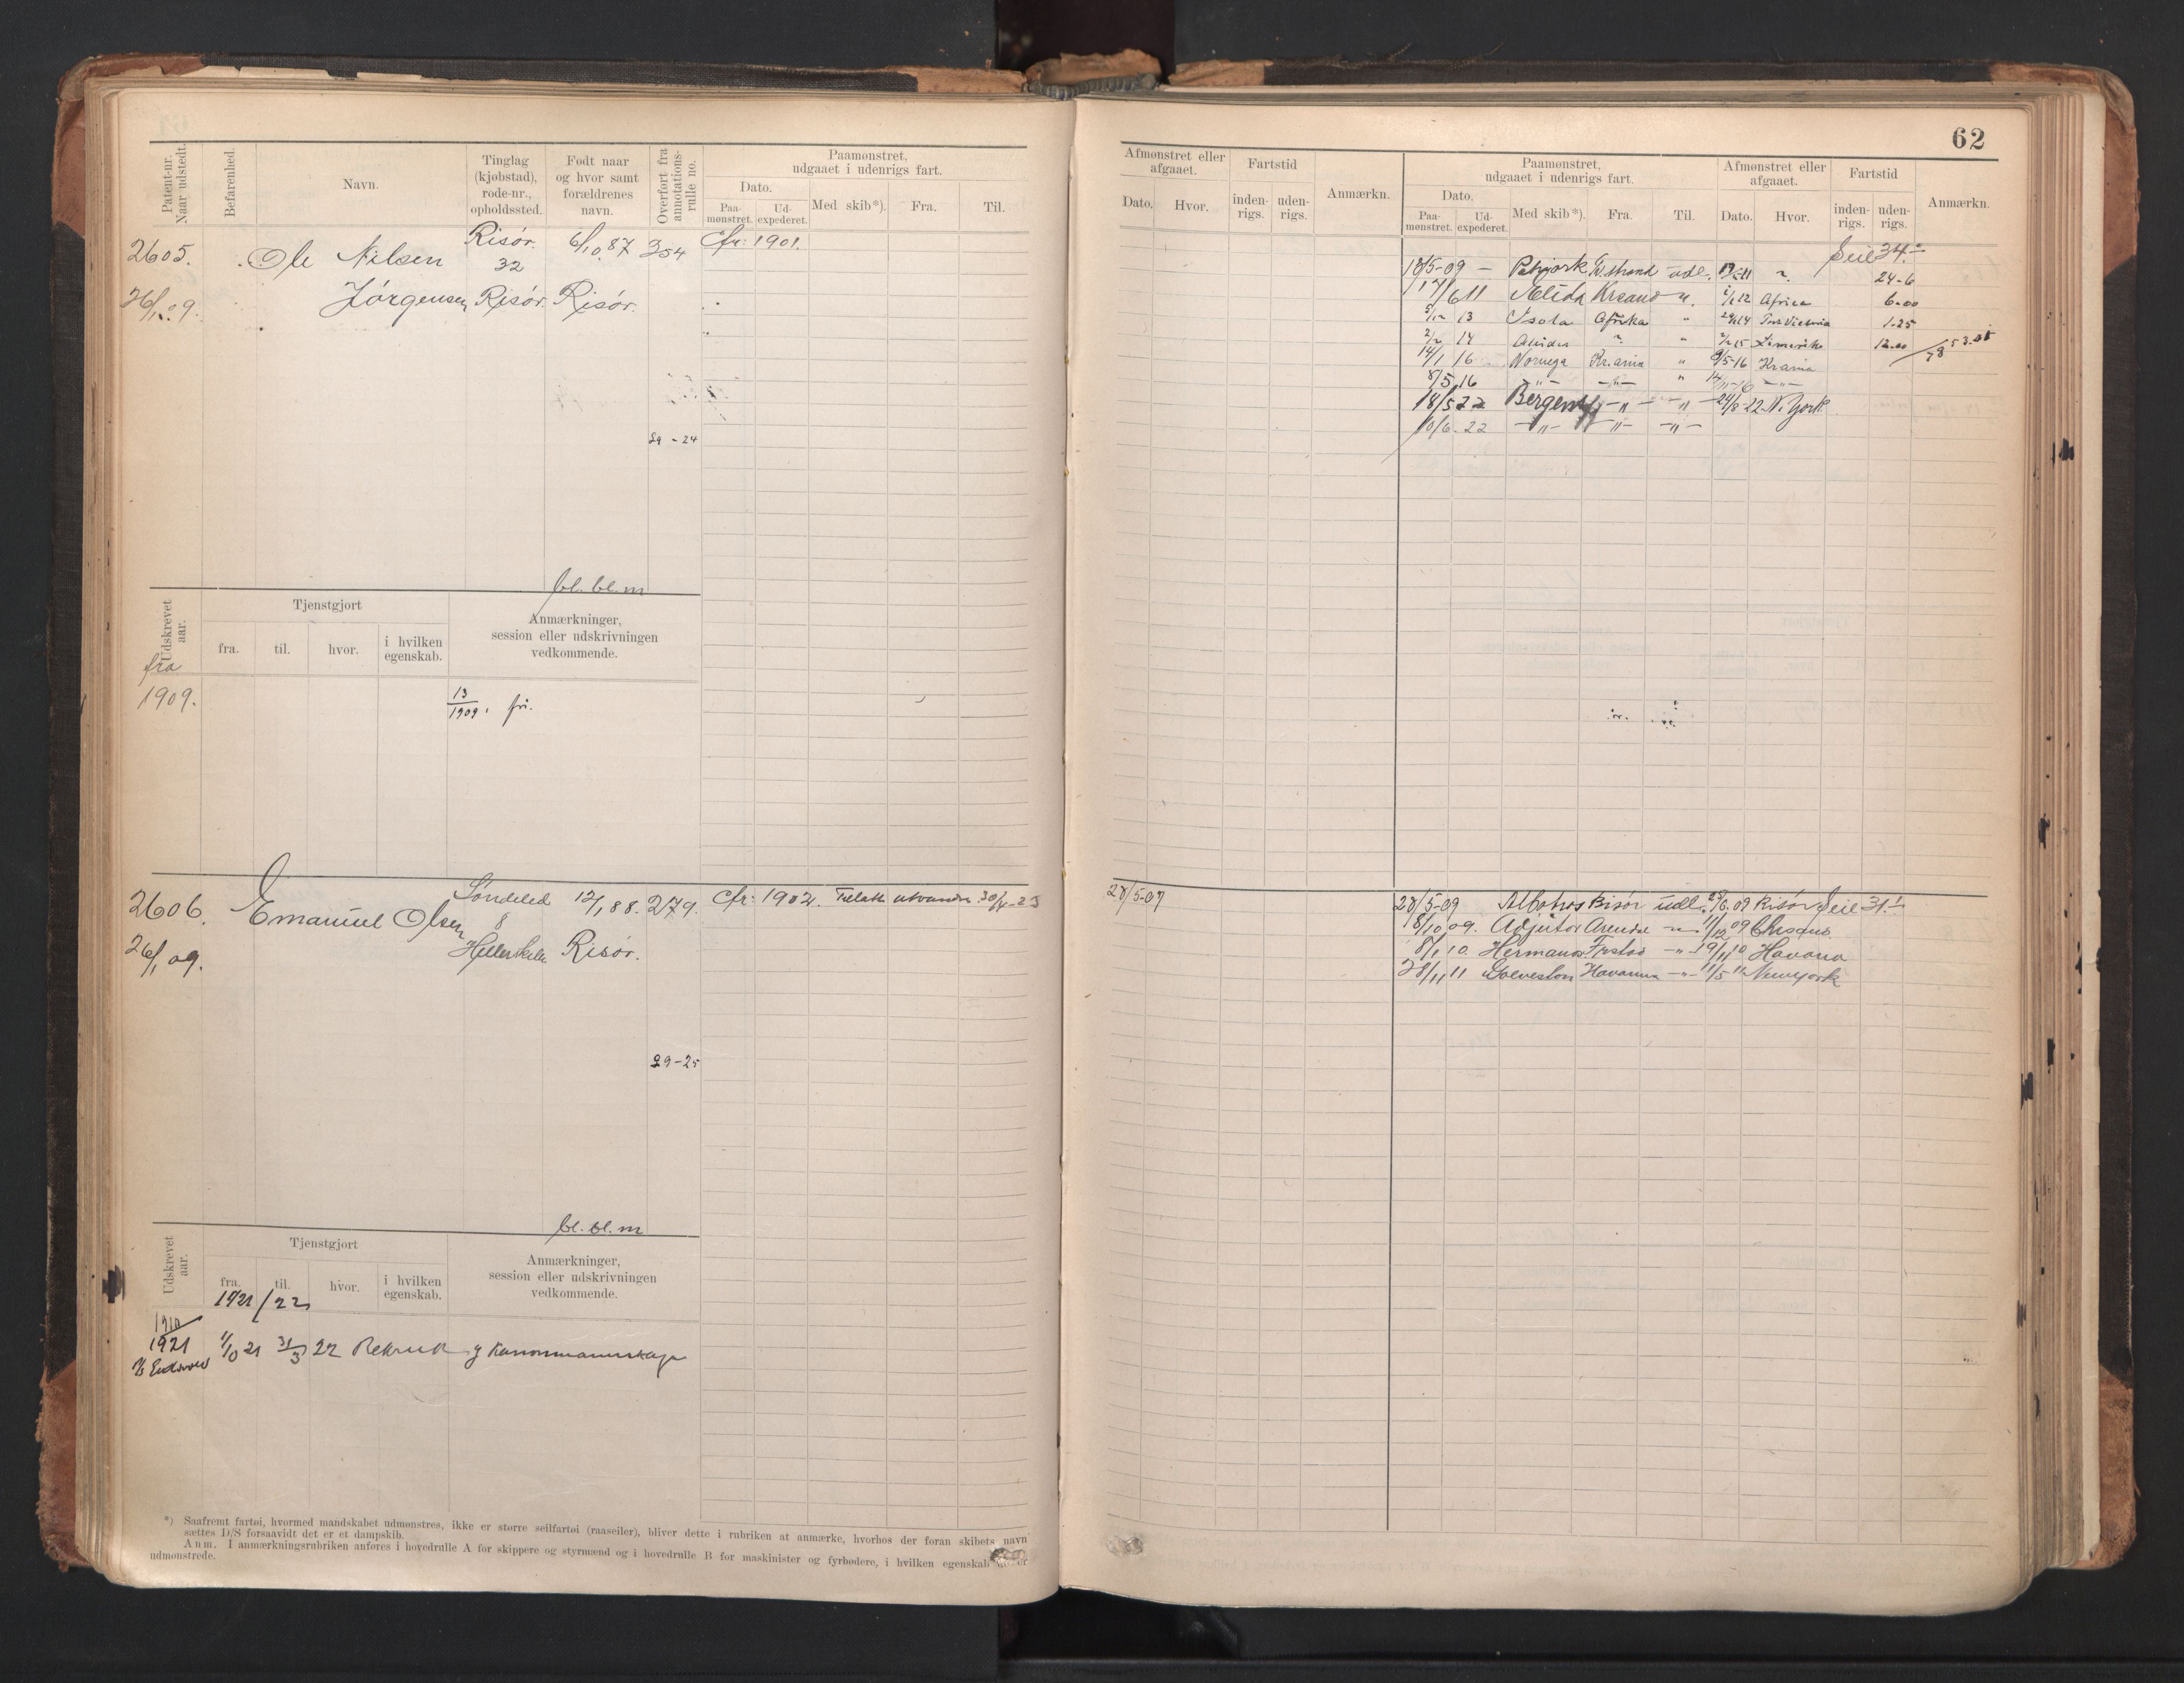 62
Patent-nr. Naar udstedt.
Befarenhed.
Navn.
Tinglag (kjøbstad), rode-nr., opholdssted.
Født naar og hvor samt forældrenes navn.
Overført fra annotations-rulle no.
Paamønstret, udgaaet i udenrigs fart.
Dato.
Paa-mønstret.
Ud-expederet.
Med skib*).
Fra.
Til.
Afmønstret eller afgaaet.
Dato.
Hvor.
Fartstid
inden-rigs.
uden-rigs.
Anmærkn.
Paamønstret, udgaaet i udenrigs fart.
Dato.
Paa-mønstret.
Ud-expederet.
Med skib*).
Fra.
Til.
Afmønstret eller afgaaet.
Dato.
Hvor.
Fartstid
inden-rigs.
uden-rigs.
Anmærkn.
2605. Ole Nilsen Risør. 6/10 87 354 Cfr: 1901.
32
26/1 09. Jørgensen Risør. Risør.
29 - 24
bl. bl. m
Seil 34.-
18/5-09 - udl. 24-6
17/6 11 Alida Krsand 1/1 12 Africa 6-00
13 Isola Afrika " 1-25
14 " 12-00
14/1 16 Noruega Kr.ania " 9/5-16 Krania
8/5 16 -"- -"- "
18/5 22 Bergensfj -"- -"- 24/8-22 N. York.
10/6-22 -"- -"- -"-
Udskrevet aar.
Tjenstgjort
fra.
til.
hvor.
i hvilken egenskab.
Anmærkninger, session eller udskrivningen vedkommende.
fra
1909.
13/1909. fri.
2606. Emanuel Olsen Søndeled 12/1 88. 279. Cfr: 1902. Tillatt utvandre 30/4-23
8
26/1 09. Risør.
29-25
bl. bl. m
28/5-09
28/5-09 Albatros Risør udl. 25/6.09 Risør Seil 31.-
18/10 09. Adjutor Arendal -"- 11/12 09
8/1 10. Hermanos -"- 19/11 10 Havana
28/11 11 Galveston Havanna -"- 11/5 11 Newyork
Udskrevet aar.
Tjenstgjort
fra.
til.
hvor.
i hvilken egenskab.
Anmærkninger, session eller udskrivningen vedkommende.
1921/22
1910
1921 1/10 21 31/3 22 Rekrut g Kanonmannskap
*) Saafremt fartøi, hvormed mandskabet udmønstres, ikke er større seilfartøi (raaseiler), bliver dette i rubriken at anmærke, hvorhos der foran skibets navn
sættes D/S forsaavidt det er et dampskib.
Anm. I anmærkningsrubriken anføres i hovedrulle A for skippere og styrmænd og i hovedrulle B for maskinister og fyrbødere, i hvilken egenskab de er
udmønstrede.